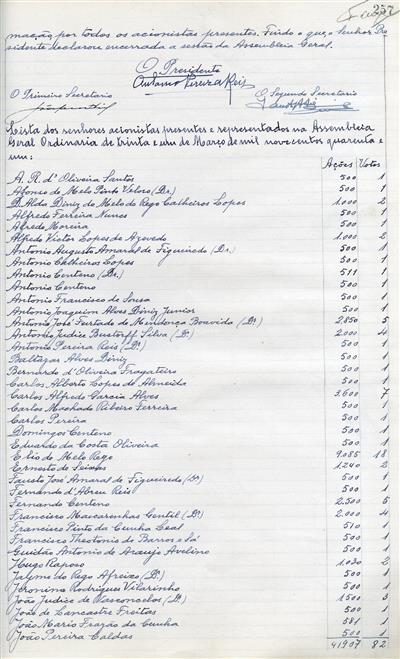 257
mação, por todos os acionistas presentes. Findo o que o Senhor Pre
sidente declarou encerrada a sessão da Assembleia Geral.
O Presidente
Antonio Pereira Reis
O Primeiro Secretario
O Segundo Secretario
Lista dos senhores acionistas presentes e representados na Assembleia
Geral Ordinaria de trinta e um de Março de mil novecentos quarenta e
um:
Ações Votos
A. R. d'Oliveira Santos 500 1
Afonso de Melo Pinto Veloso (Dr.) 500 1
D. Aldo Diniz de Melo do Rego Calheiros Lopes 1.000 2
Alfredo Ferreira Nunes 500 1
Alfredo Moreira 500 1
Alfredo Victor Lopes de Azevedo 1.000 2
Antonio Augusto Amaral de Figueiredo (Dr.) 500 1
Antonio Calheiros Lopes 500 1
Antonio Centeno (Dr.) 511 1
Antonio Centeno 500 1
Antonio Francisco de Sousa 500 1
Antonio Joaquim Alves Diniz Junior 500 1
Antonio José Furtado de Mendonça Boavida (Dr.) 2.850 5
Antonio Judice Bustorff Silva (Dr.) 2.000 4
Antonio Pereira Reis (Dr.) 500 1
Baltazar Alves Diniz 500 1
Bernardo d'Oliveira Fragateiro 500 1
Carlos Alberto Lopes de Almeida 500 1
Carlos Alfredo Garcia Alves 3.600 7
Carlos Machado Ribeiro Ferreira 500 1
Carlos Pereira 500 1
Domingos Centeno 500 1
Eduardo da Costa Oliveira 500 1
Elio de Melo Rego 9.085 18
Ernesto de Seixas 1.240 2
Fausto José Amaral de Figueiredo (Dr.) 500 1
Fernando d'Abreu Reis 500 1
Fernando Centeno 2.500 5
Francisco Mascarenhas Gentil (Dr.) 2.000 4
Francisco Pinto da Cunha Leal 510 1
Francisco Theotonio de Barros e Sá 500 1
Guildão Antonio de Araujo Avelino 500 1
Hugo Raposo 1.030 2
Jayme do Rego Afreixo (Dr.) 500 1
Jeronimo Rodrigues Vilarinho 500 1
João Judice de Vasconcelos (Dr.) 1.500 3
João de Lancastre Freitas 500 1
João Mario Frazão da Cunha 581 1
João Pereira Caldas 500 1
41907 82